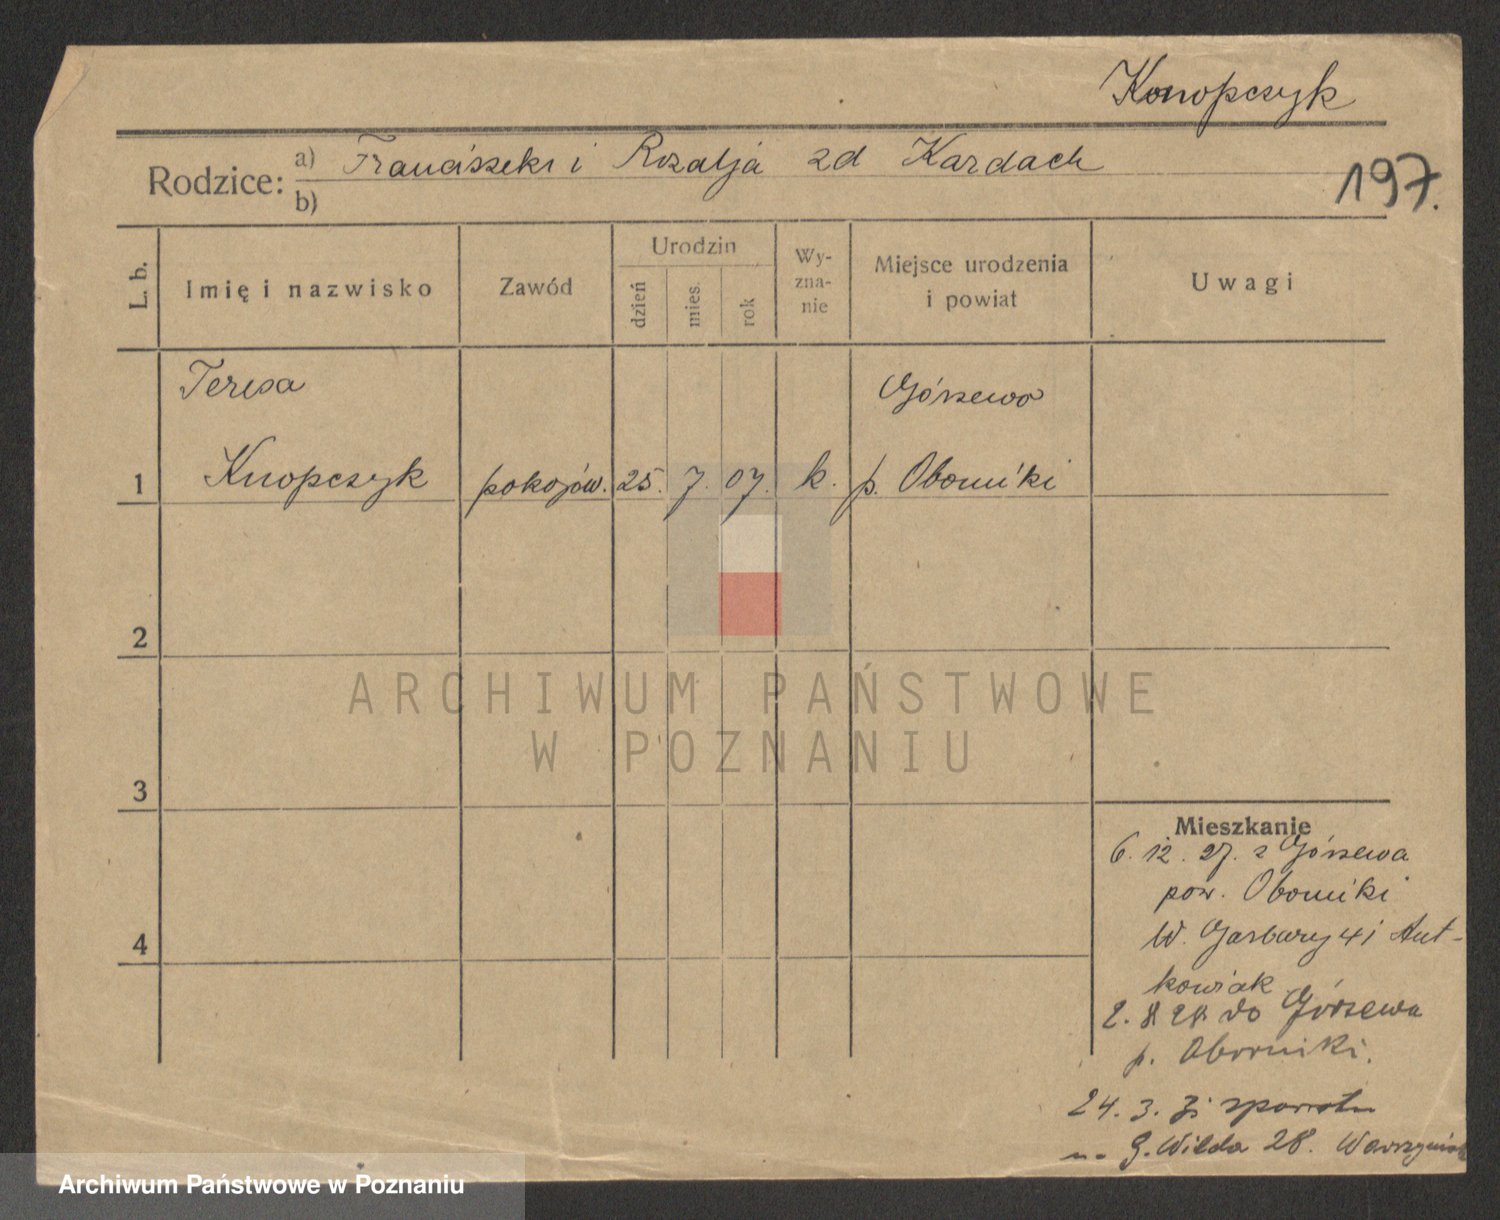 Konopczyk
Rodzice: a) Franciszek i Rozalja zd Kardach
b)
197.
L. b. Imię i nazwisko Zawód Urodzin dzień mies. rok Wy-zna-nie Miejsce urodzenia i powiat Uwagi
Teresa Górszewo
1 Knopczyk pokojów. 25. 7. 07. k. p. Oborniki
2
ARCHIWUM PAŃSTWOWE
W POZNANIU
3
Mieszkanie
6. 12. 27. z Górszewa
pow. Oborniki
W. Garbary 41 Ant-
4
kowiak
2. 8 28 do Górszewa
p. Oborniki.
24. 3. zpowrotem
G. Wilda 28.
Archiwum Państwowe w Poznaniu